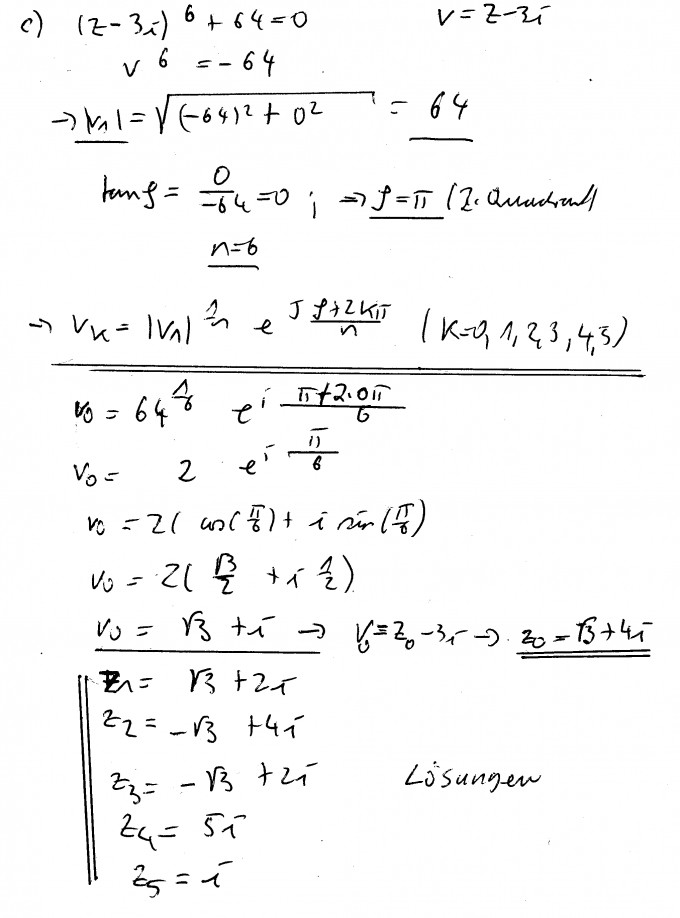 c) (z-3i)^6 + 64 = 0 v = z-3i
v^6 = -64
→ |v1| = √((-64)² + 0²) = 64
tan φ = 0/-64 = 0 ; ⇒ φ = π (2. Quadrant
n = 6
→ vk = |v1|^(1/n) e^(j (φ+2kπ)/n) (k=0, 1, 2, 3, 4, 5)
v0 = 64^(1/6) e^(i (π+2·0π)/6)
v0 = 2 e^(i π/6)
v0 = 2( cos(π/6) + i sin(π/6)
v0 = 2( √3/2 + i 1/2)
v0 = √3 + i → v0 = z0 - 3i → z0 = √3 + 4i
z1 = √3 + 2i
z2 = -√3 + 4i
z3 = -√3 + 2i Lösungen
z4 = 5i
z5 = i